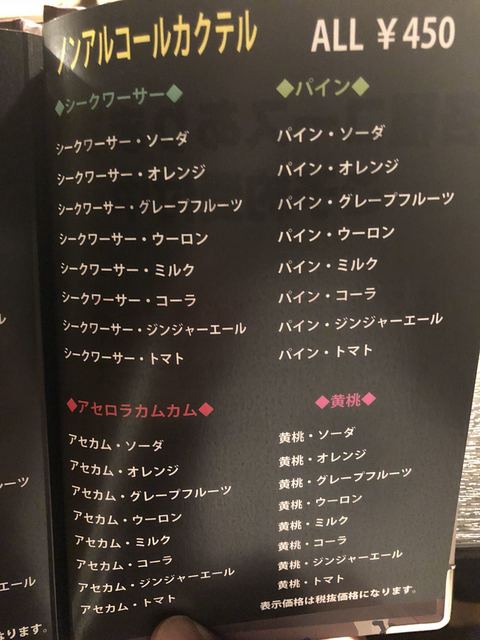 ノンアルコールカクテル ALL ￥450
◆シークワーサー◆
シークワーサー・ソーダ
シークワーサー・オレンジ
シークワーサー・グレープフルーツ
シークワーサー・ウーロン
シークワーサー・ミルク
シークワーサー・コーラ
シークワーサー・ジンジャーエール
シークワーサー・トマト
◆パイン◆
パイン・ソーダ
パイン・オレンジ
パイン・グレープフルーツ
パイン・ウーロン
パイン・ミルク
パイン・コーラ
パイン・ジンジャーエール
パイン・トマト
◆アセロラカムカム◆
アセカム・ソーダ
アセカム・オレンジ
アセカム・グレープフルーツ
アセカム・ウーロン
アセカム・ミルク
アセカム・コーラ
アセカム・ジンジャーエール
アセカム・トマト
◆黄桃◆
黄桃・ソーダ
黄桃・オレンジ
黄桃・グレープフルーツ
黄桃・ウーロン
黄桃・ミルク
黄桃・コーラ
黄桃・ジンジャーエール
黄桃・トマト
表示価格は税抜価格になります。